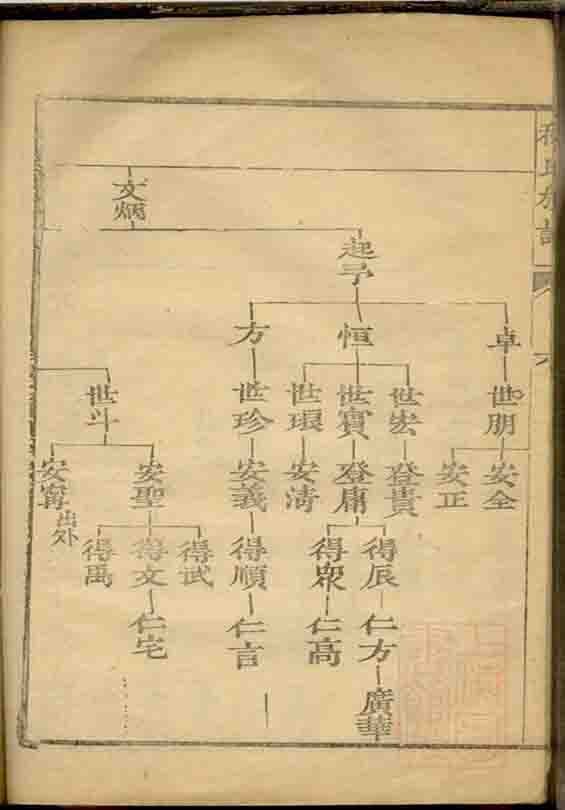 程氏族譜
文炳
起予
卓
恒
方
世朋
世宏
世寶
世琅
世珍
世斗
安全
安正
登貴
登庸
安淸
安義
安聖
安甯
出外
得辰
得衆
得順
得武
得文
得禹
仁方
仁高
仁言
仁宅
廣華